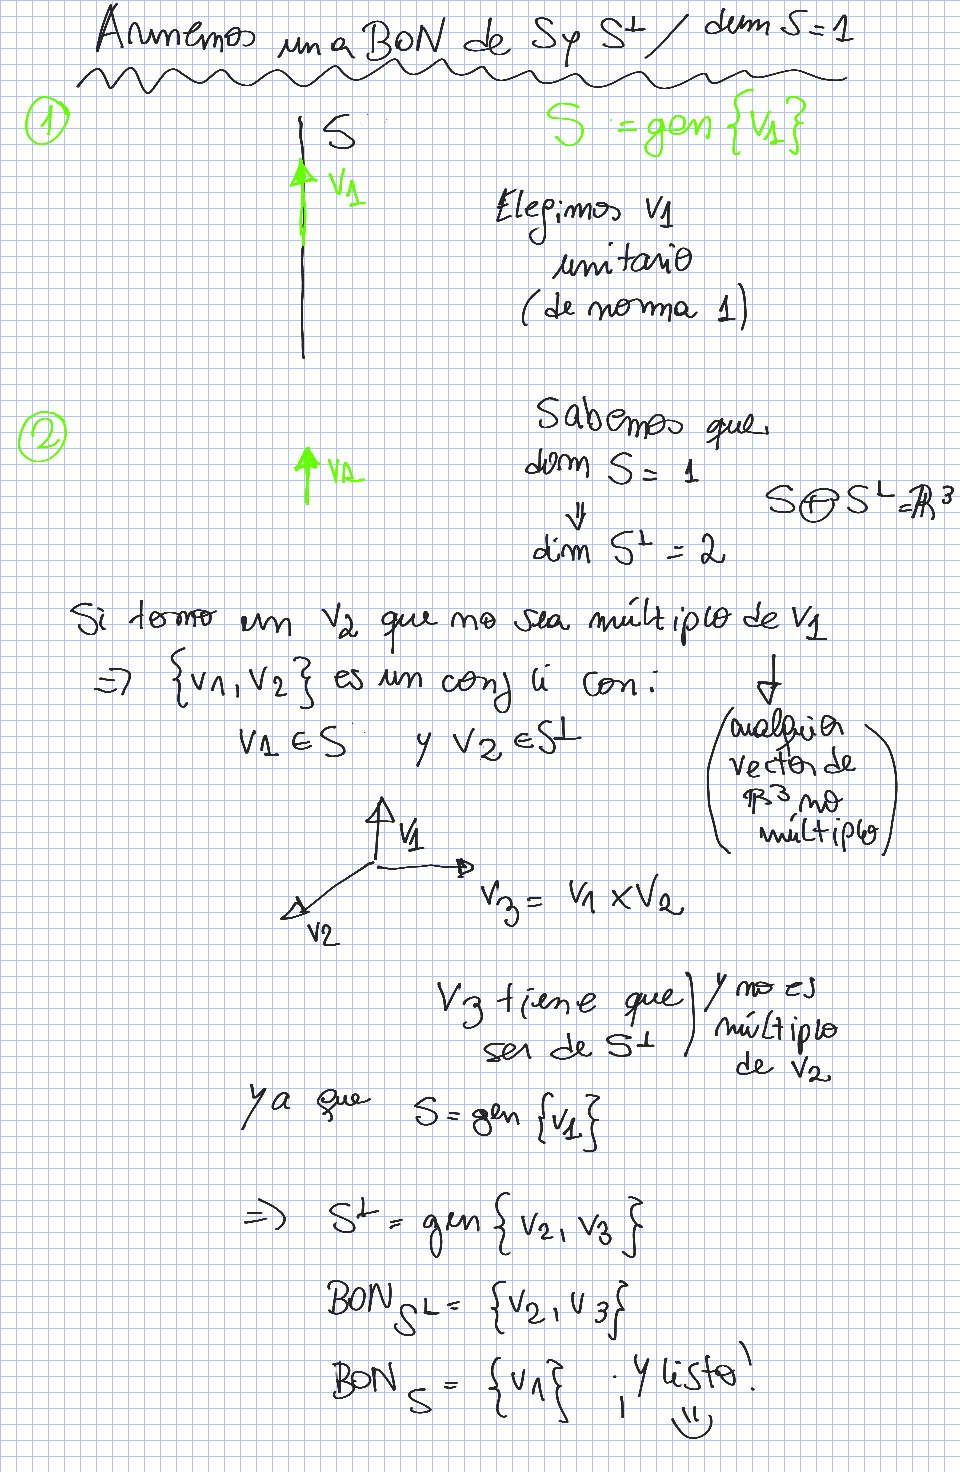 Armemos una BON de S y S⊥ / dim S = 1
1
S
V1
S = gen {V1}
Elegimos V1
unitario
(de norma 1)
2
V1
Sabemos que
dim S = 1
⇓
dim S⊥ = 2
S ⊕ S⊥ = ℝ³
Si tomo un V2 que no sea múltiplo de V1
⇒ {V1, V2} es un conj li con:
V1 ∈ S y V2 ∈ S⊥
(cualquier
vector de
ℝ³ no
múltiplo)
V1
V2
V3 = V1 × V2
V3 tiene que
ser de S⊥
y no es
múltiplo
de V2
ya que S = gen {V1}
⇒ S⊥ = gen {V2, V3}
BON S⊥ = {V2, V3}
BON S = {V1} ¡y listo!